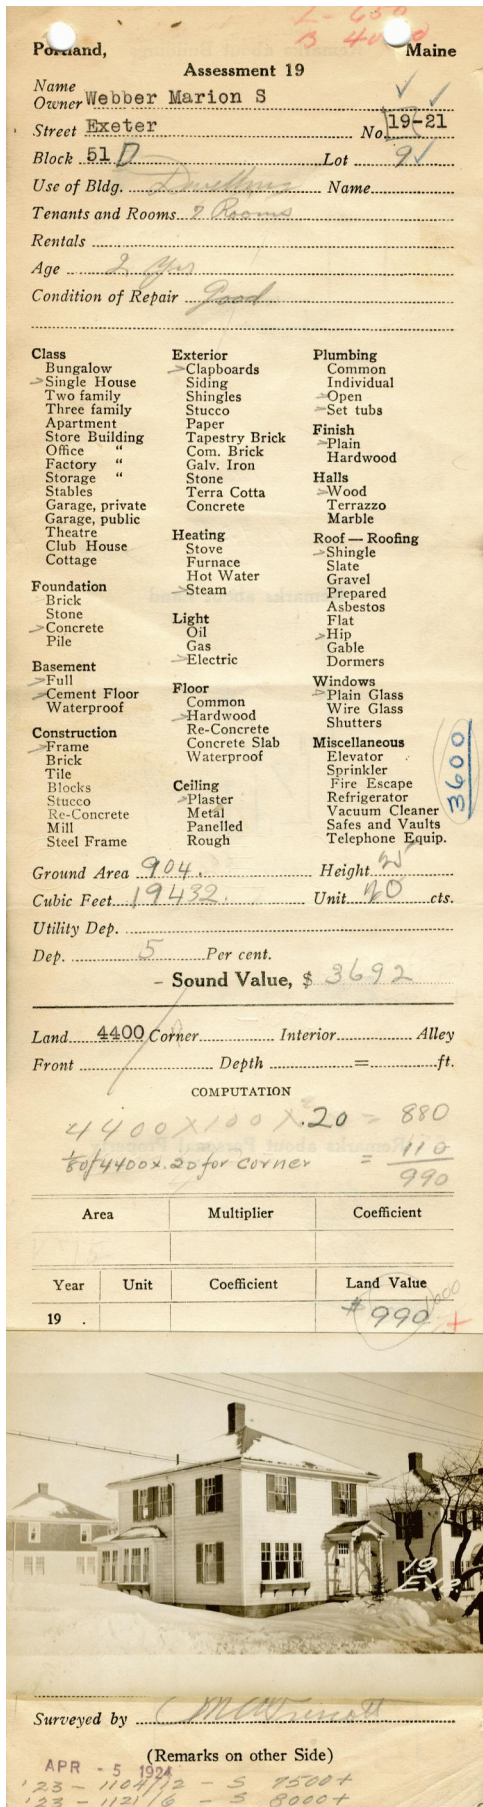 L - 650
Portland, Maine
Assessment 19
Name
Owner Webber Marion S
Street Exeter No. 19-21
Block 51 D Lot 9
Use of Bldg. Dwelling Name
Tenants and Rooms 7 Rooms
Rentals
Age 2 Yrs
Condition of Repair Good
Class
Bungalow
Single House
Two family
Three family
Apartment
Store Building
Office "
Factory "
Storage "
Stables
Garage, private
Garage, public
Theatre
Club House
Cottage
Foundation
Brick
Stone
Concrete
Pile
Basement
Full
Cement Floor
Waterproof
Construction
Frame
Brick
Tile
Blocks
Stucco
Re-Concrete
Mill
Steel Frame
Exterior
Clapboards
Siding
Shingles
Stucco
Paper
Tapestry Brick
Com. Brick
Galv. Iron
Stone
Terra Cotta
Concrete
Heating
Stove
Furnace
Hot Water
Steam
Light
Oil
Gas
Electric
Floor
Common
Hardwood
Re-Concrete
Concrete Slab
Waterproof
Ceiling
Plaster
Metal
Panelled
Rough
Plumbing
Common
Individual
Open
Set tubs
Finish
Plain
Hardwood
Halls
Wood
Terrazzo
Marble
Roof — Roofing
Shingle
Slate
Gravel
Prepared
Asbestos
Flat
Hip
Gable
Dormers
Windows
Plain Glass
Wire Glass
Shutters
Miscellaneous
Elevator
Sprinkler
Fire Escape
Refrigerator
Vacuum Cleaner
Safes and Vaults
Telephone Equip.
3600
Ground Area 904. Height
Cubic Feet 19432. Unit 20 cts.
Utility Dep.
Dep. 5 Per cent.
- Sound Value, $ 3692
Land 4400 Corner Interior Alley
Front Depth = ft.
COMPUTATION
4400 X 100 X .20 = 880
1/8 of 4400 x .20 for corner = 110
990
Area Multiplier Coefficient
Year Unit Coefficient Land Value
19 . $ 990
19
Surveyed by
(Remarks on other Side)
APR - 5 1924
'23 - 1104/12 - S 7500+
'23 - 1121/6 - S 8000+